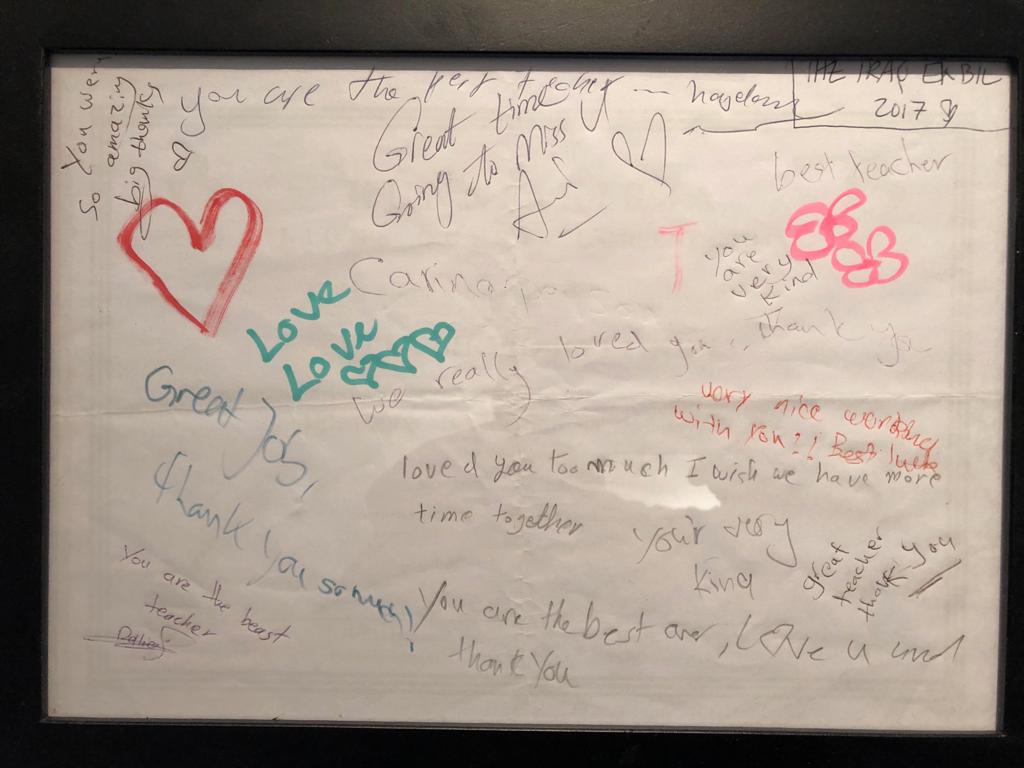 So You were
amazing
big thanks
you are the best teacher
Great time
Going to Miss
THE IRAQ ERBIL
2017
best teacher
T
you
are
very
kind
Carina
Love
Love
we really loved you .. thank you
Great Job,
thank you so much
very nice working
with you!! Best luck
loved you too much I wish we have more
time together
your very
kind
great
teacher
thank you
You are the beast
teacher
You are the best ever, LOVe u and
thank You